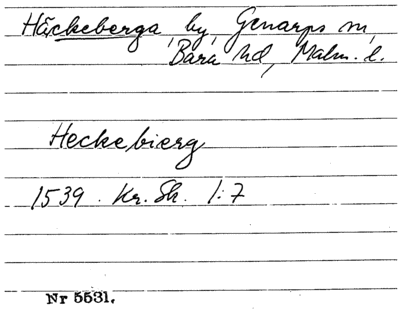 Häckeberga, by, Genarps sn,
Bara hd, Malm. l.
Heckebierg
1539. Kr. Sk. 1:7
Nr 5531.